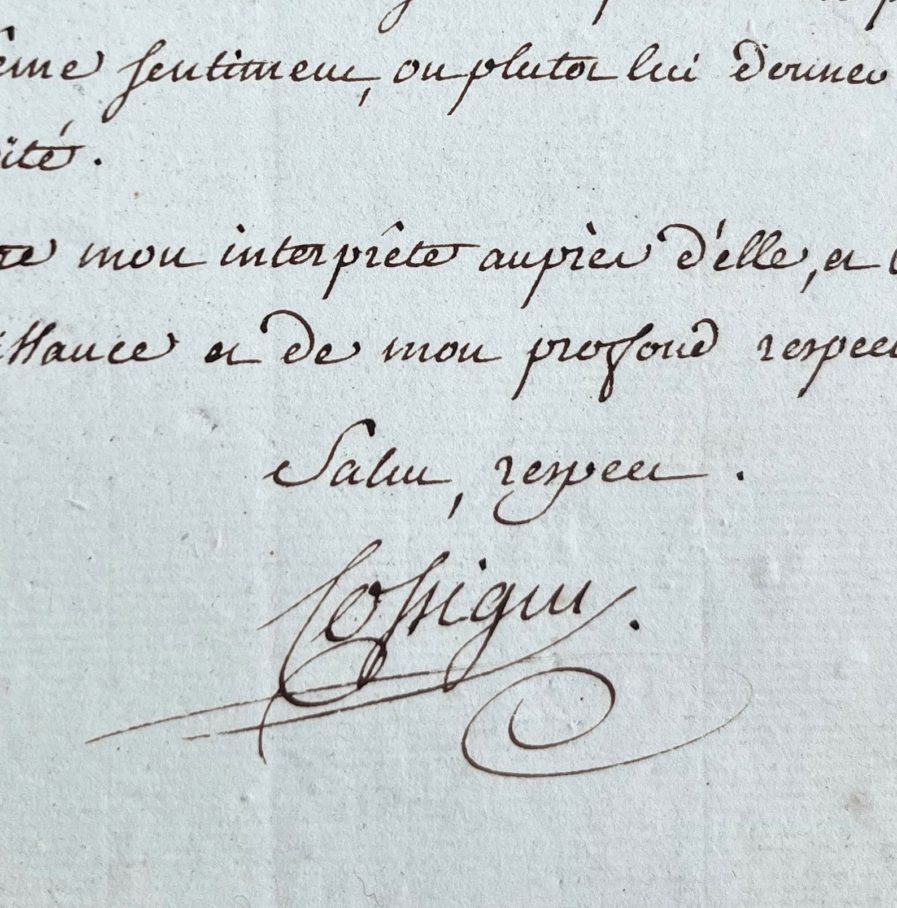 ême sentiment, ou plutot lui donner
ïté.
re mon interprête auprès d'elle, et
issance et de mon profond respect
Salut, respect.
Cossigni.